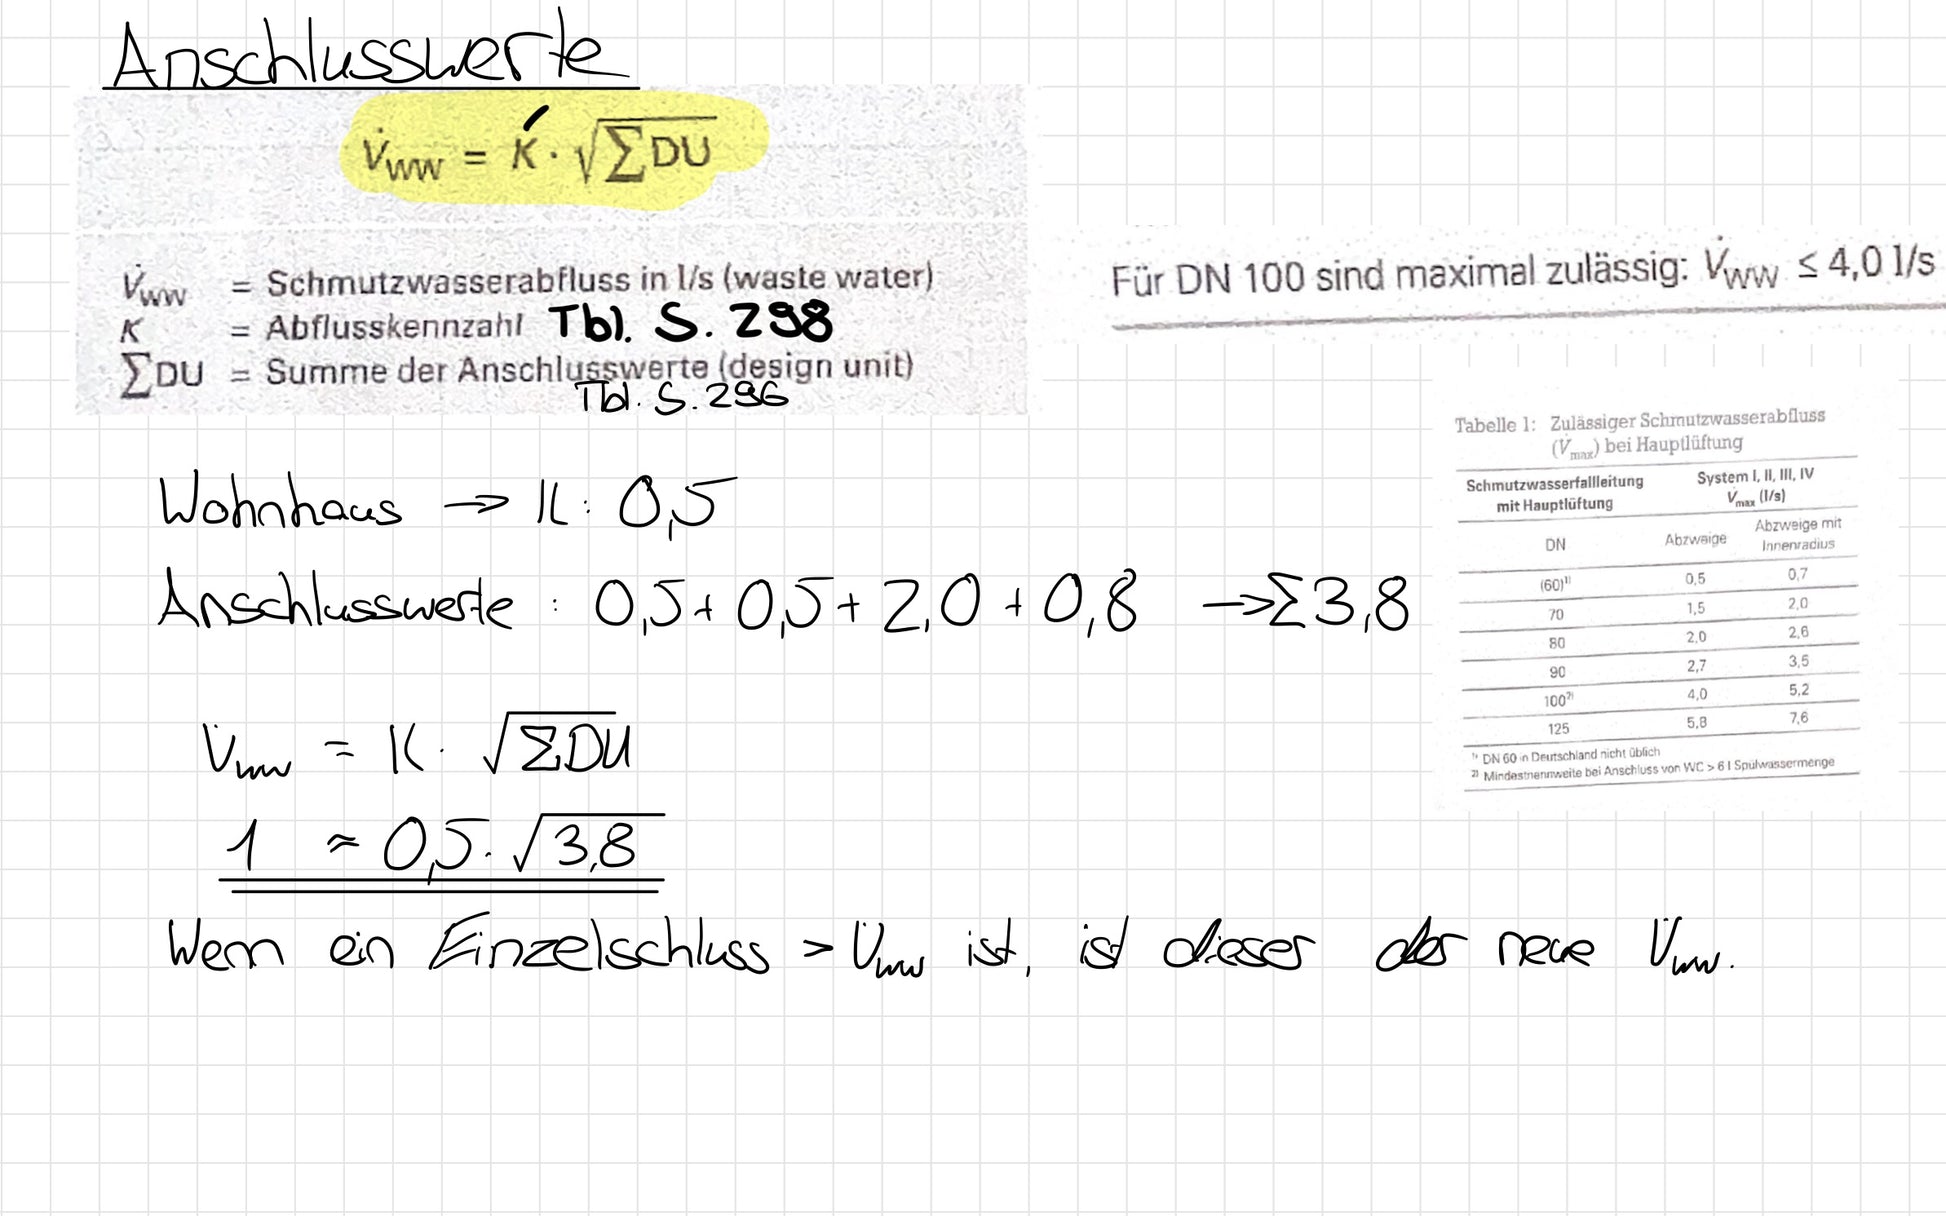 Anschlusswerte
V̇ww = K · √∑DU
V̇ww = Schmutzwasserabfluss in l/s (waste water)
K = Abflusskennzahl Tbl. S. 298
∑DU = Summe der Anschlusswerte (design unit)
Tbl. S. 296
Für DN 100 sind maximal zulässig: V̇ww ≤ 4,0 l/s
Tabelle 1: Zulässiger Schmutzwasserabfluss
(V̇max) bei Hauptlüftung
Schmutzwasserfallleitung System I, II, III, IV
mit Hauptlüftung V̇max (l/s)
DN Abzweige Abzweige mit
Innenradius
(60)¹⁾ 0,5 0,7
70 1,5 2,0
80 2,0 2,6
90 2,7 3,5
100²⁾ 4,0 5,2
125 5,8 7,6
¹⁾ DN 60 in Deutschland nicht üblich
²⁾ Mindestnennweite bei Anschluss von WC > 6 l Spülwassermenge
Wohnhaus → K: 0,5
Anschlusswerte : 0,5 + 0,5 + 2,0 + 0,8 → Σ3,8
V̇ww = K · √ΣDU
1 ≈ 0,5 · √3,8
Wenn ein Einzelschluss > V̇ww ist, ist dieser der neue V̇ww.